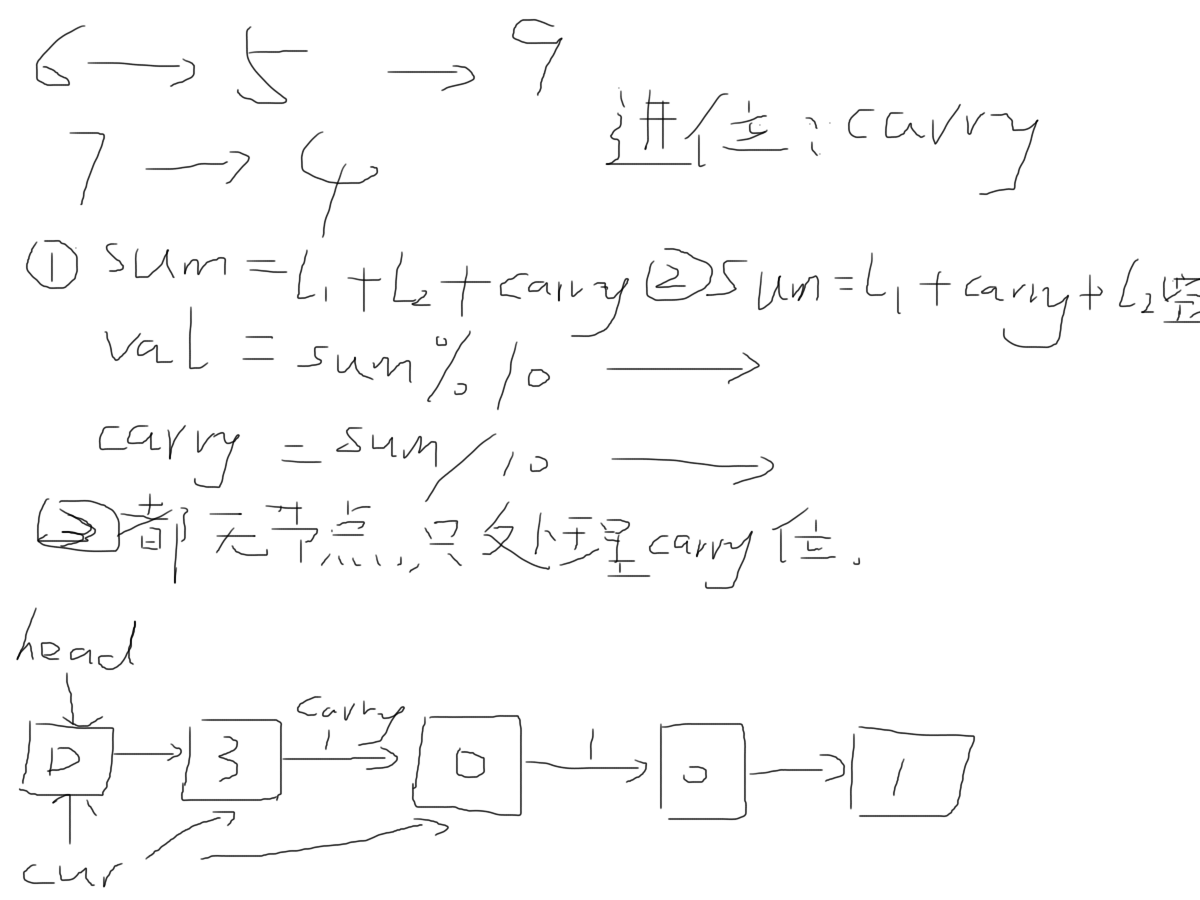 6 → 5 → 9
进位: carry
7 → 4
① sum = L₁ + L₂ + carry ② sum = L₁ + carry + L₂空
val = sum % 10 →
carry = sum / 10 →
③ 都无节点, 只处理carry位.
head
carry
D → 3 1→ 0 1→ 0 → 1
cur